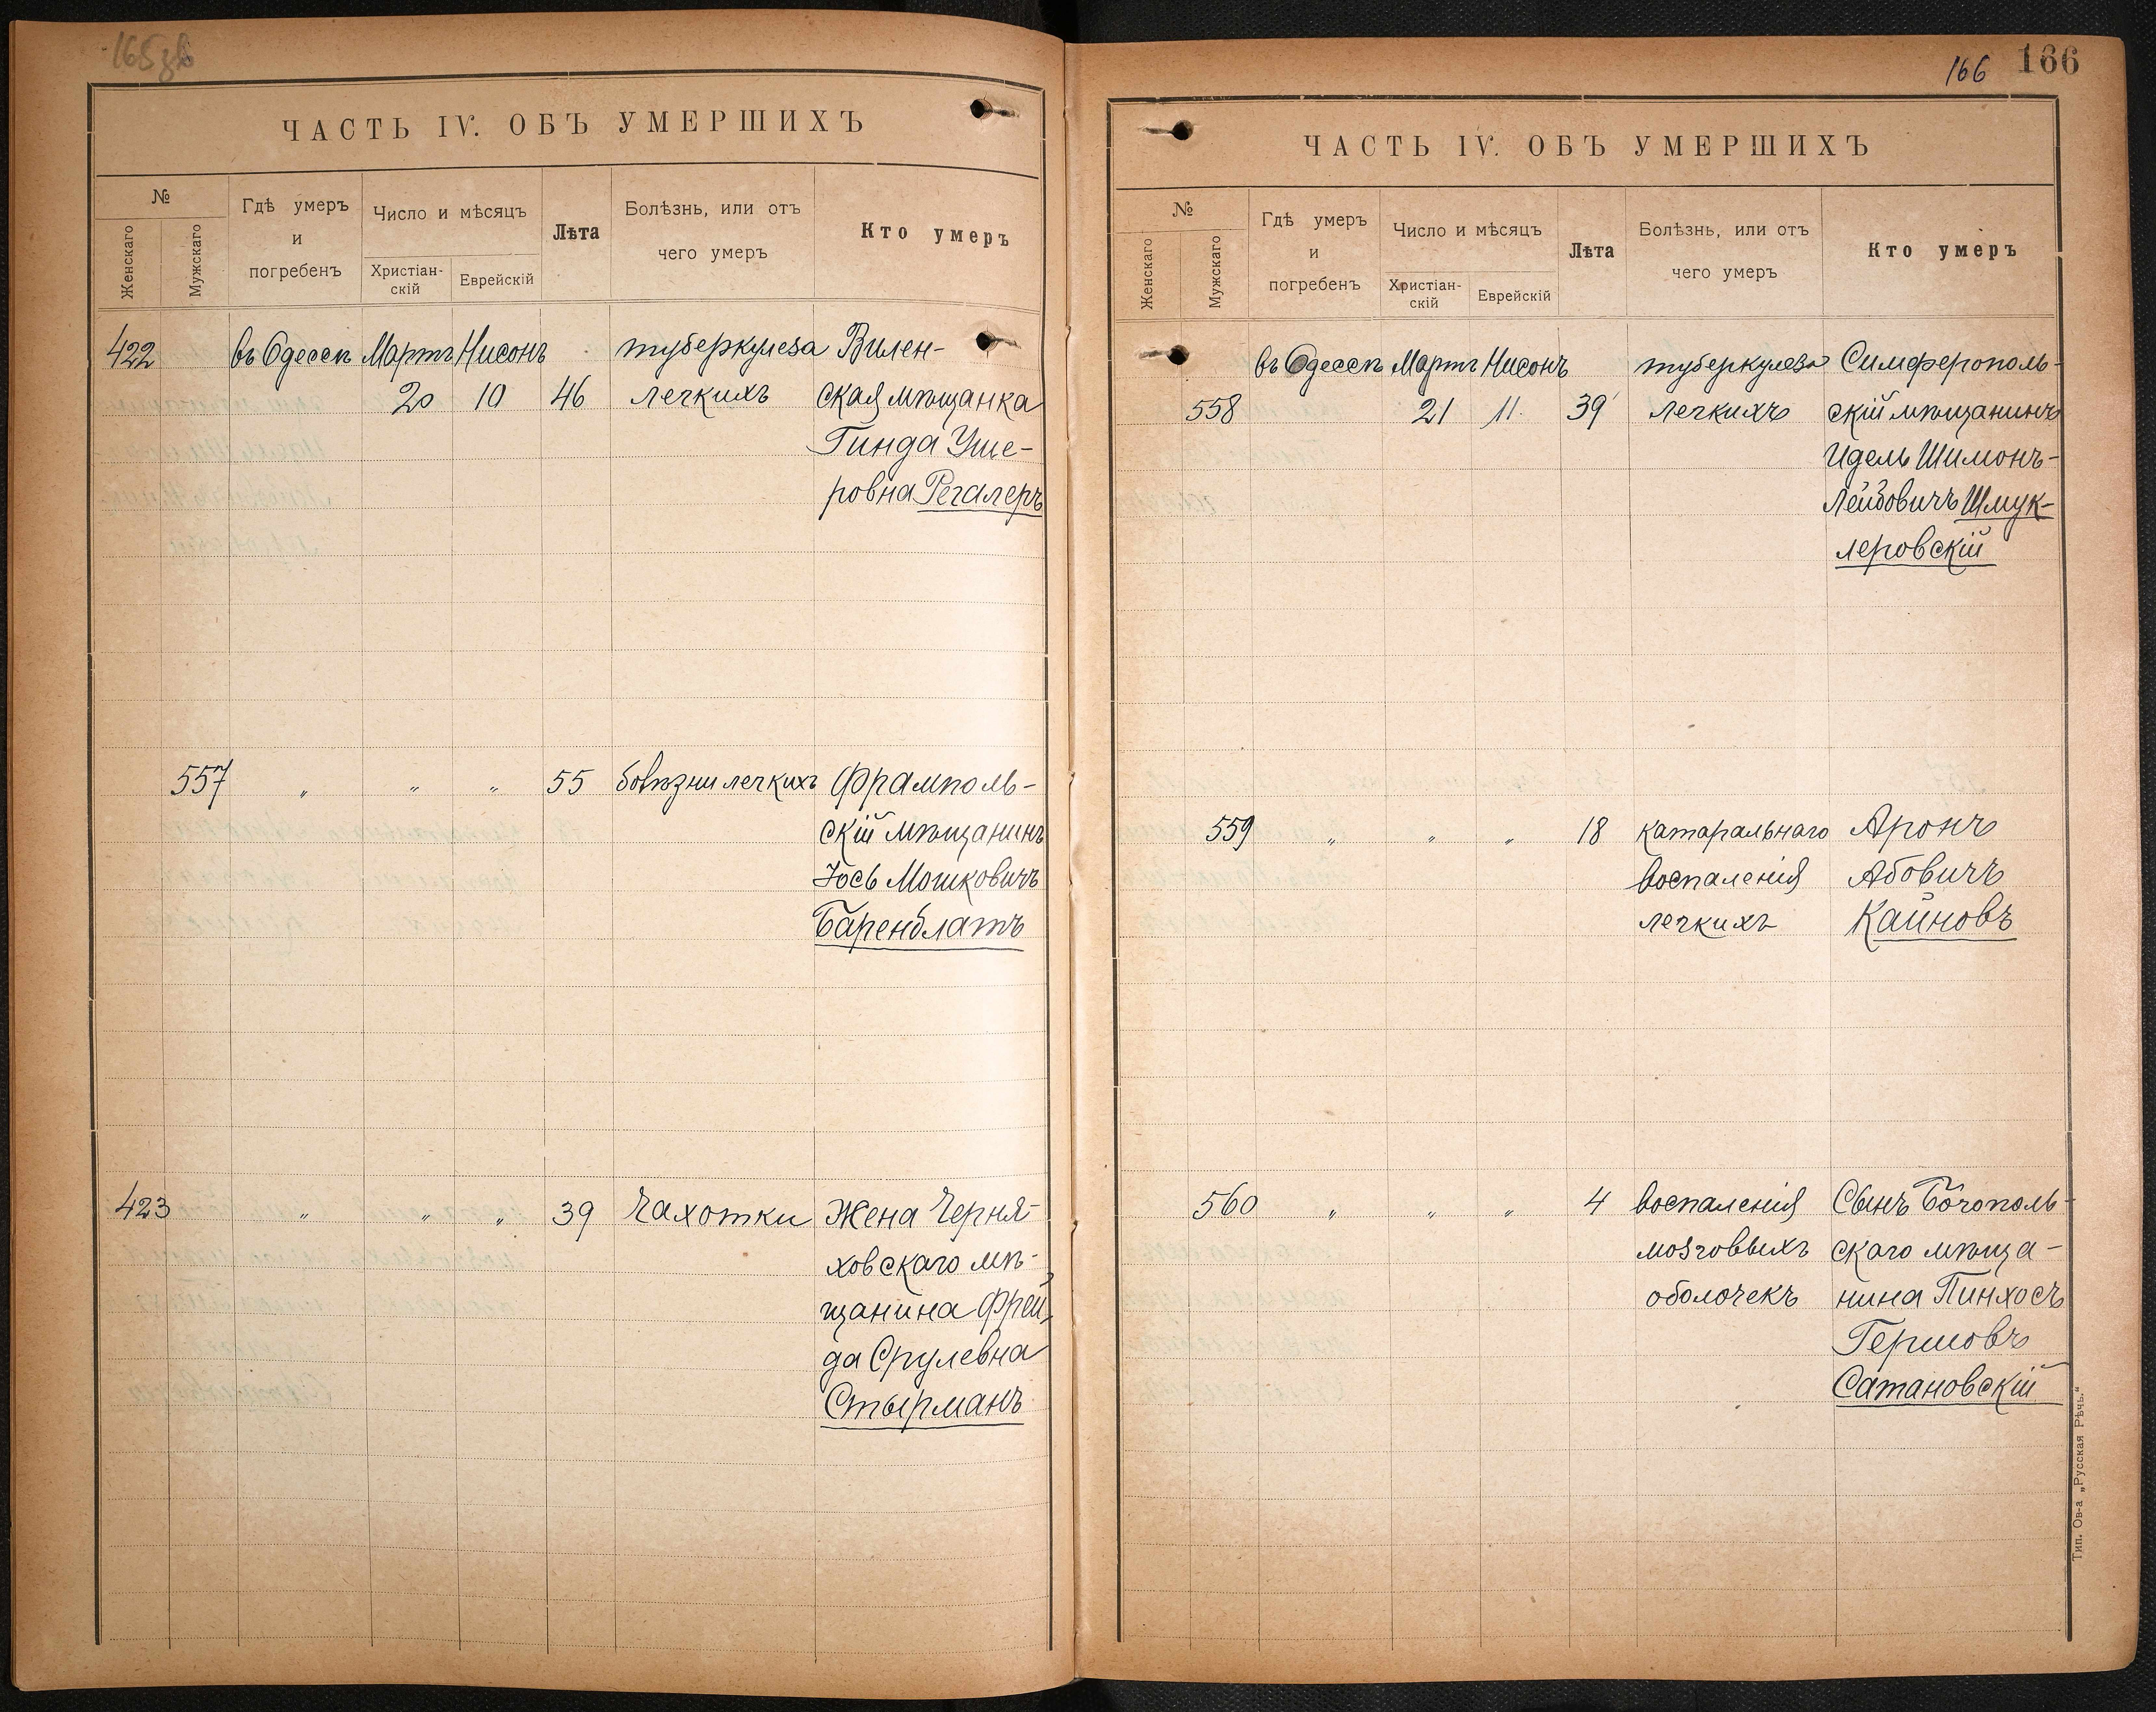 165 зв
ЧАСТЬ IV. ОБЪ УМЕРШИХЪ
№
Женскаго
Мужскаго
Гдѣ умеръ
и
погребенъ
Число и мѣсяцъ
Христіан-
скій
Еврейскій
Лѣта
Болѣзнь, или отъ
чего умеръ
Кто умеръ
422 въ Одессѣ Мартъ Нисонъ туберкулеза Вилен-
20 10 46 легкихъ ская мѣщанка
Гинда Уше-
ровна Регалеръ
557 „ „ „ 55 болѣзни легкихъ Фрамполь-
скій мѣщанинъ
Іось Мошковичъ
Баренблатъ
423 „ „ „ 39 Чахотки Жена Черня-
ховскаго мѣ-
щанина Фрей-
да Срулевна
Стырманъ
166 166
ЧАСТЬ IV. ОБЪ УМЕРШИХЪ
№
Женскаго
Мужскаго
Гдѣ умеръ
и
погребенъ
Число и мѣсяцъ
Христіан-
скій
Еврейскій
Лѣта
Болѣзнь, или отъ
чего умеръ
Кто умеръ
въ Одессѣ Мартъ Нисонъ туберкулеза Симферополь-
558 21 11 39 легкихъ скій мѣщанинъ
Идель Шимонъ-
Лейбовичъ Шмук-
леровскій
559 „ „ „ 18 катаральнаго Аронъ
воспаленія Абовичъ
легкихъ Каиновъ
560 „ „ „ 4 воспаленія Сынъ Богополь-
мозговыхъ скаго мѣща-
оболочекъ нина Пинхосъ
Гершовъ
Сатановскій
Тип. Ов-а „Русская Рѣчь.“